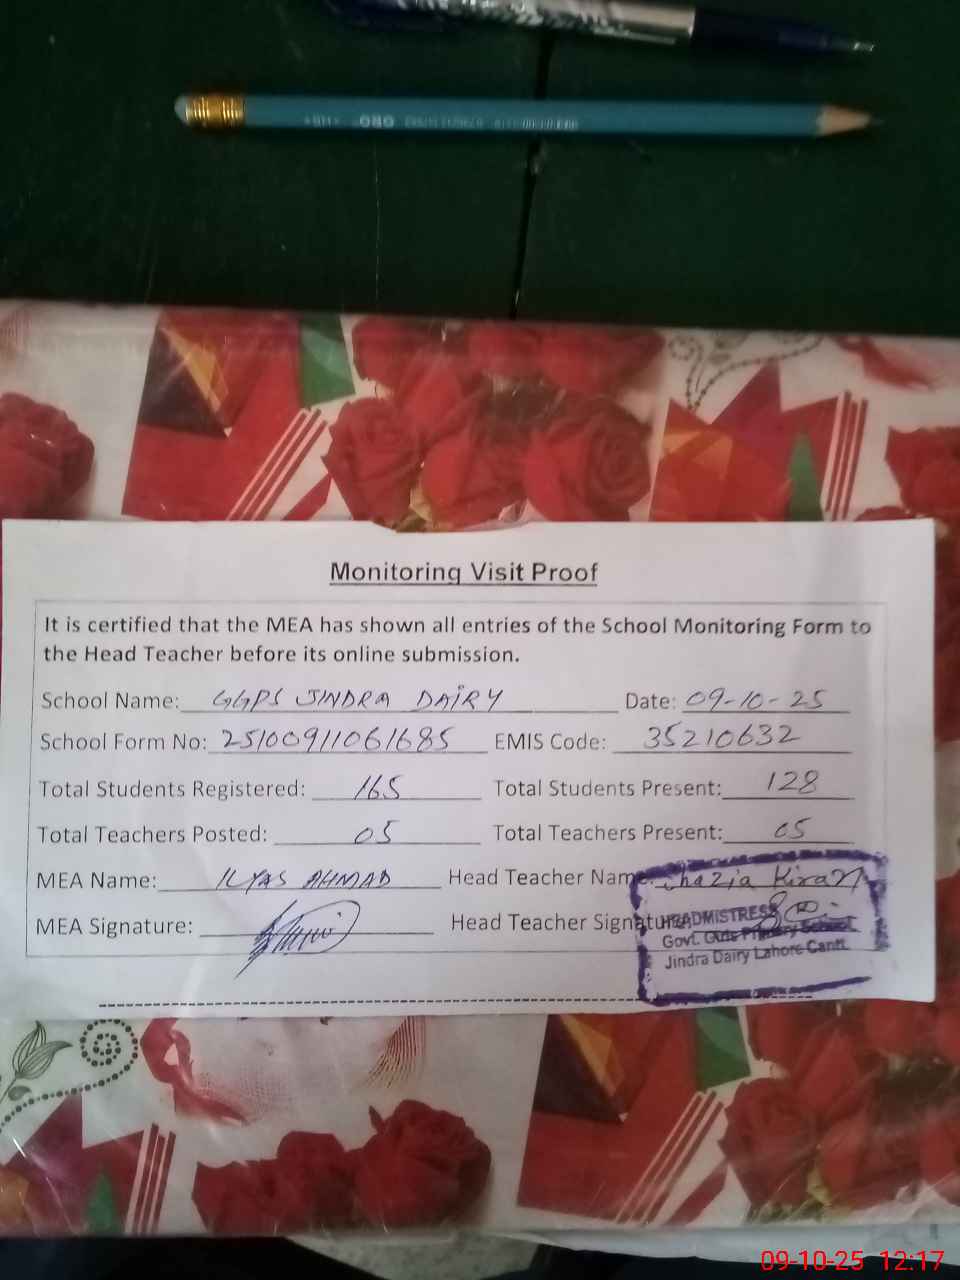 GBO
Monitoring Visit Proof
It is certified that the MEA has shown all entries of the School Monitoring Form to
the Head Teacher before its online submission.
School Name: GGPS JINDRA DAIRY Date: 09-10-25
School Form No: 25100911061685 EMIS Code: 35210632
Total Students Registered: 165 Total Students Present: 128
Total Teachers Posted: 05 Total Teachers Present: 05
MEA Name: ILYAS AHMAD Head Teacher Name: Shazia Kiran
MEA Signature: Head Teacher Signature:
HEADMISTRESS
Govt. Girls Primary School
Jindra Dairy Lahore Cantt.
09-10-25 12:17